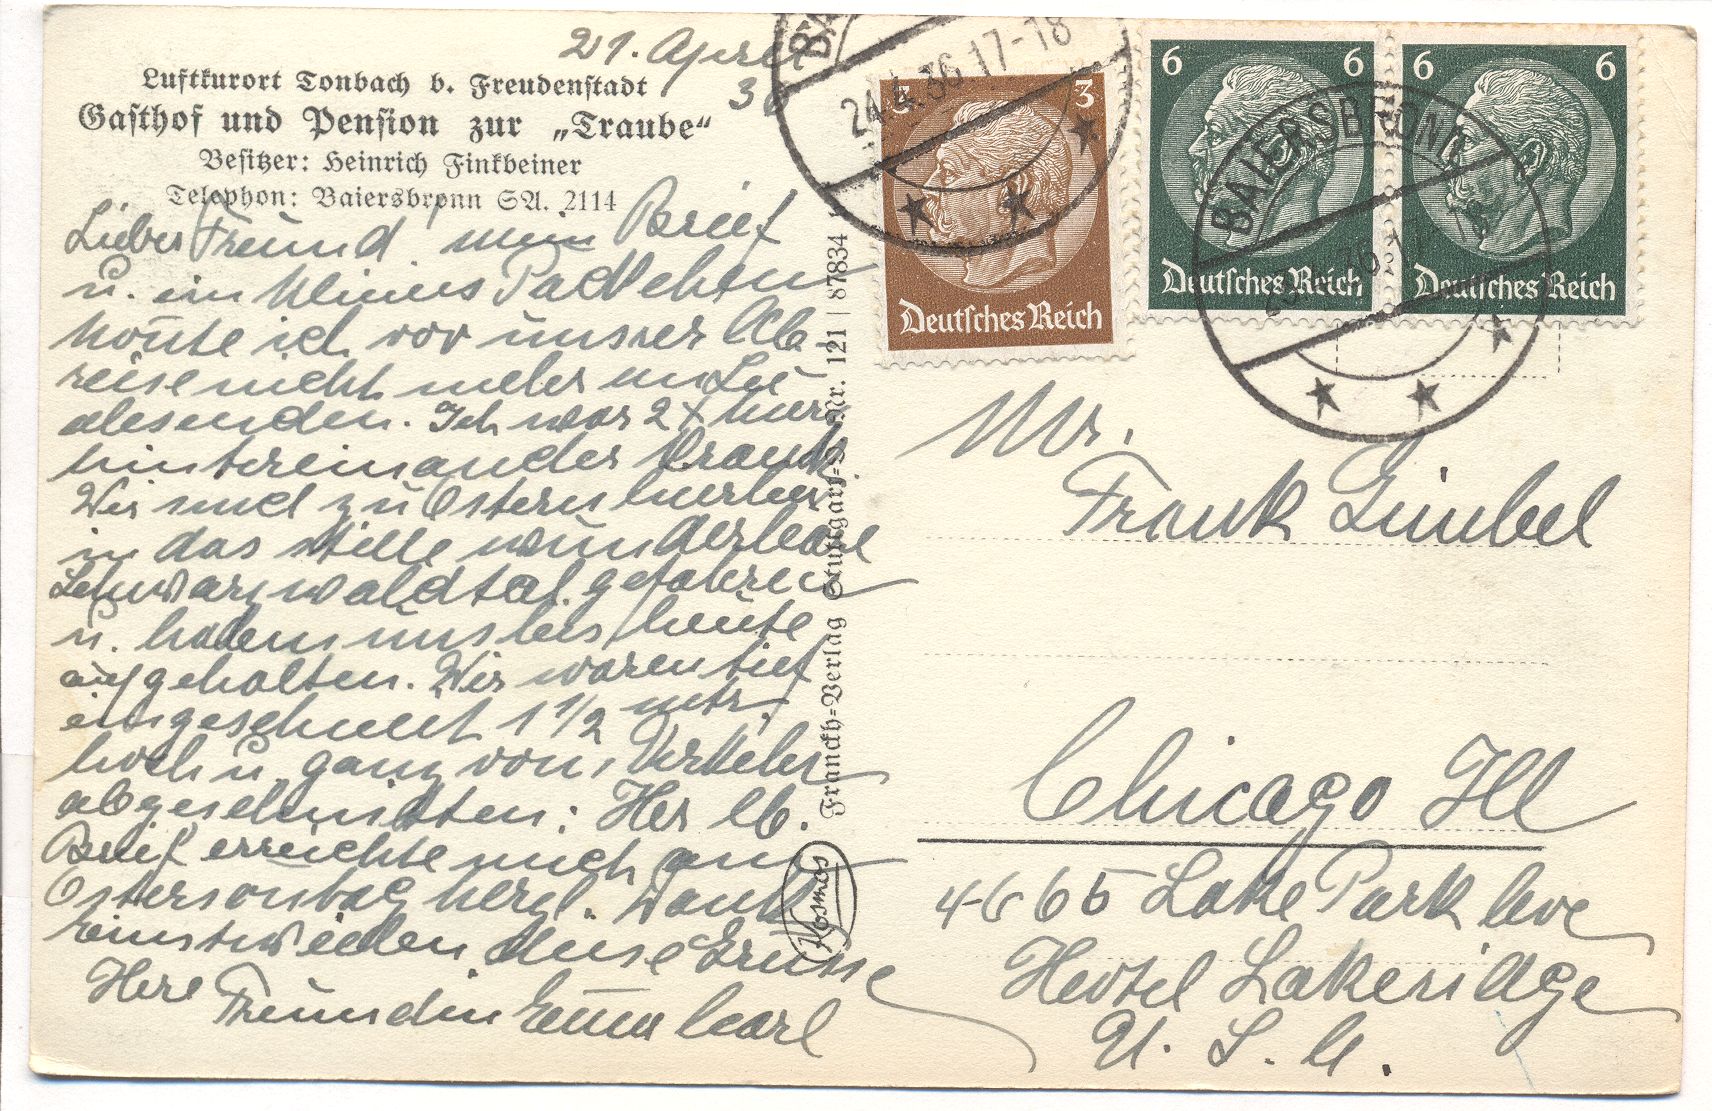 21. April
36
Luftkurort Tonbach b. Freudenstadt
Gasthof und Pension zur „Traube“
Besitzer: Heinrich Finkbeiner
Telephon: Baiersbronn SA. 2114
Lieber Freund! mein Brief
u. ein kleines Päckchen
konnte ich vor unsrer Ab-
reise nicht mehr an Sie
absenden. Ich war 2x kurz
hintereinander krank
Wir sind zu Ostern hierher
in das stille wunderbare
Schwarzwaldtal gefahren
u. haben uns bis heute
aufgehalten. Wir waren tief
eingeschneit 1 1/2 mtr.
hoch u. ganz vom Verkehr
abgeschnitten: Ihr lb.
Brief erreichte mich am
Ostersonntag herzl. Dank
Einstweilen diese Grüsse
Ihre Freundin Emma Carl
Franckh-Verlag Stuttgart-S. Nr. 121 | 87834
Kosmos
24.4.36.17-18
3 3
Deutsches Reich
6 6
Deutsches Reich
6 6
Deutsches Reich
BAIERSBRONN
Mr.
Frank Gimbel
Chicago Ill
4665 Lake Park Ave
Hotel Lakeridge
U. S. A.